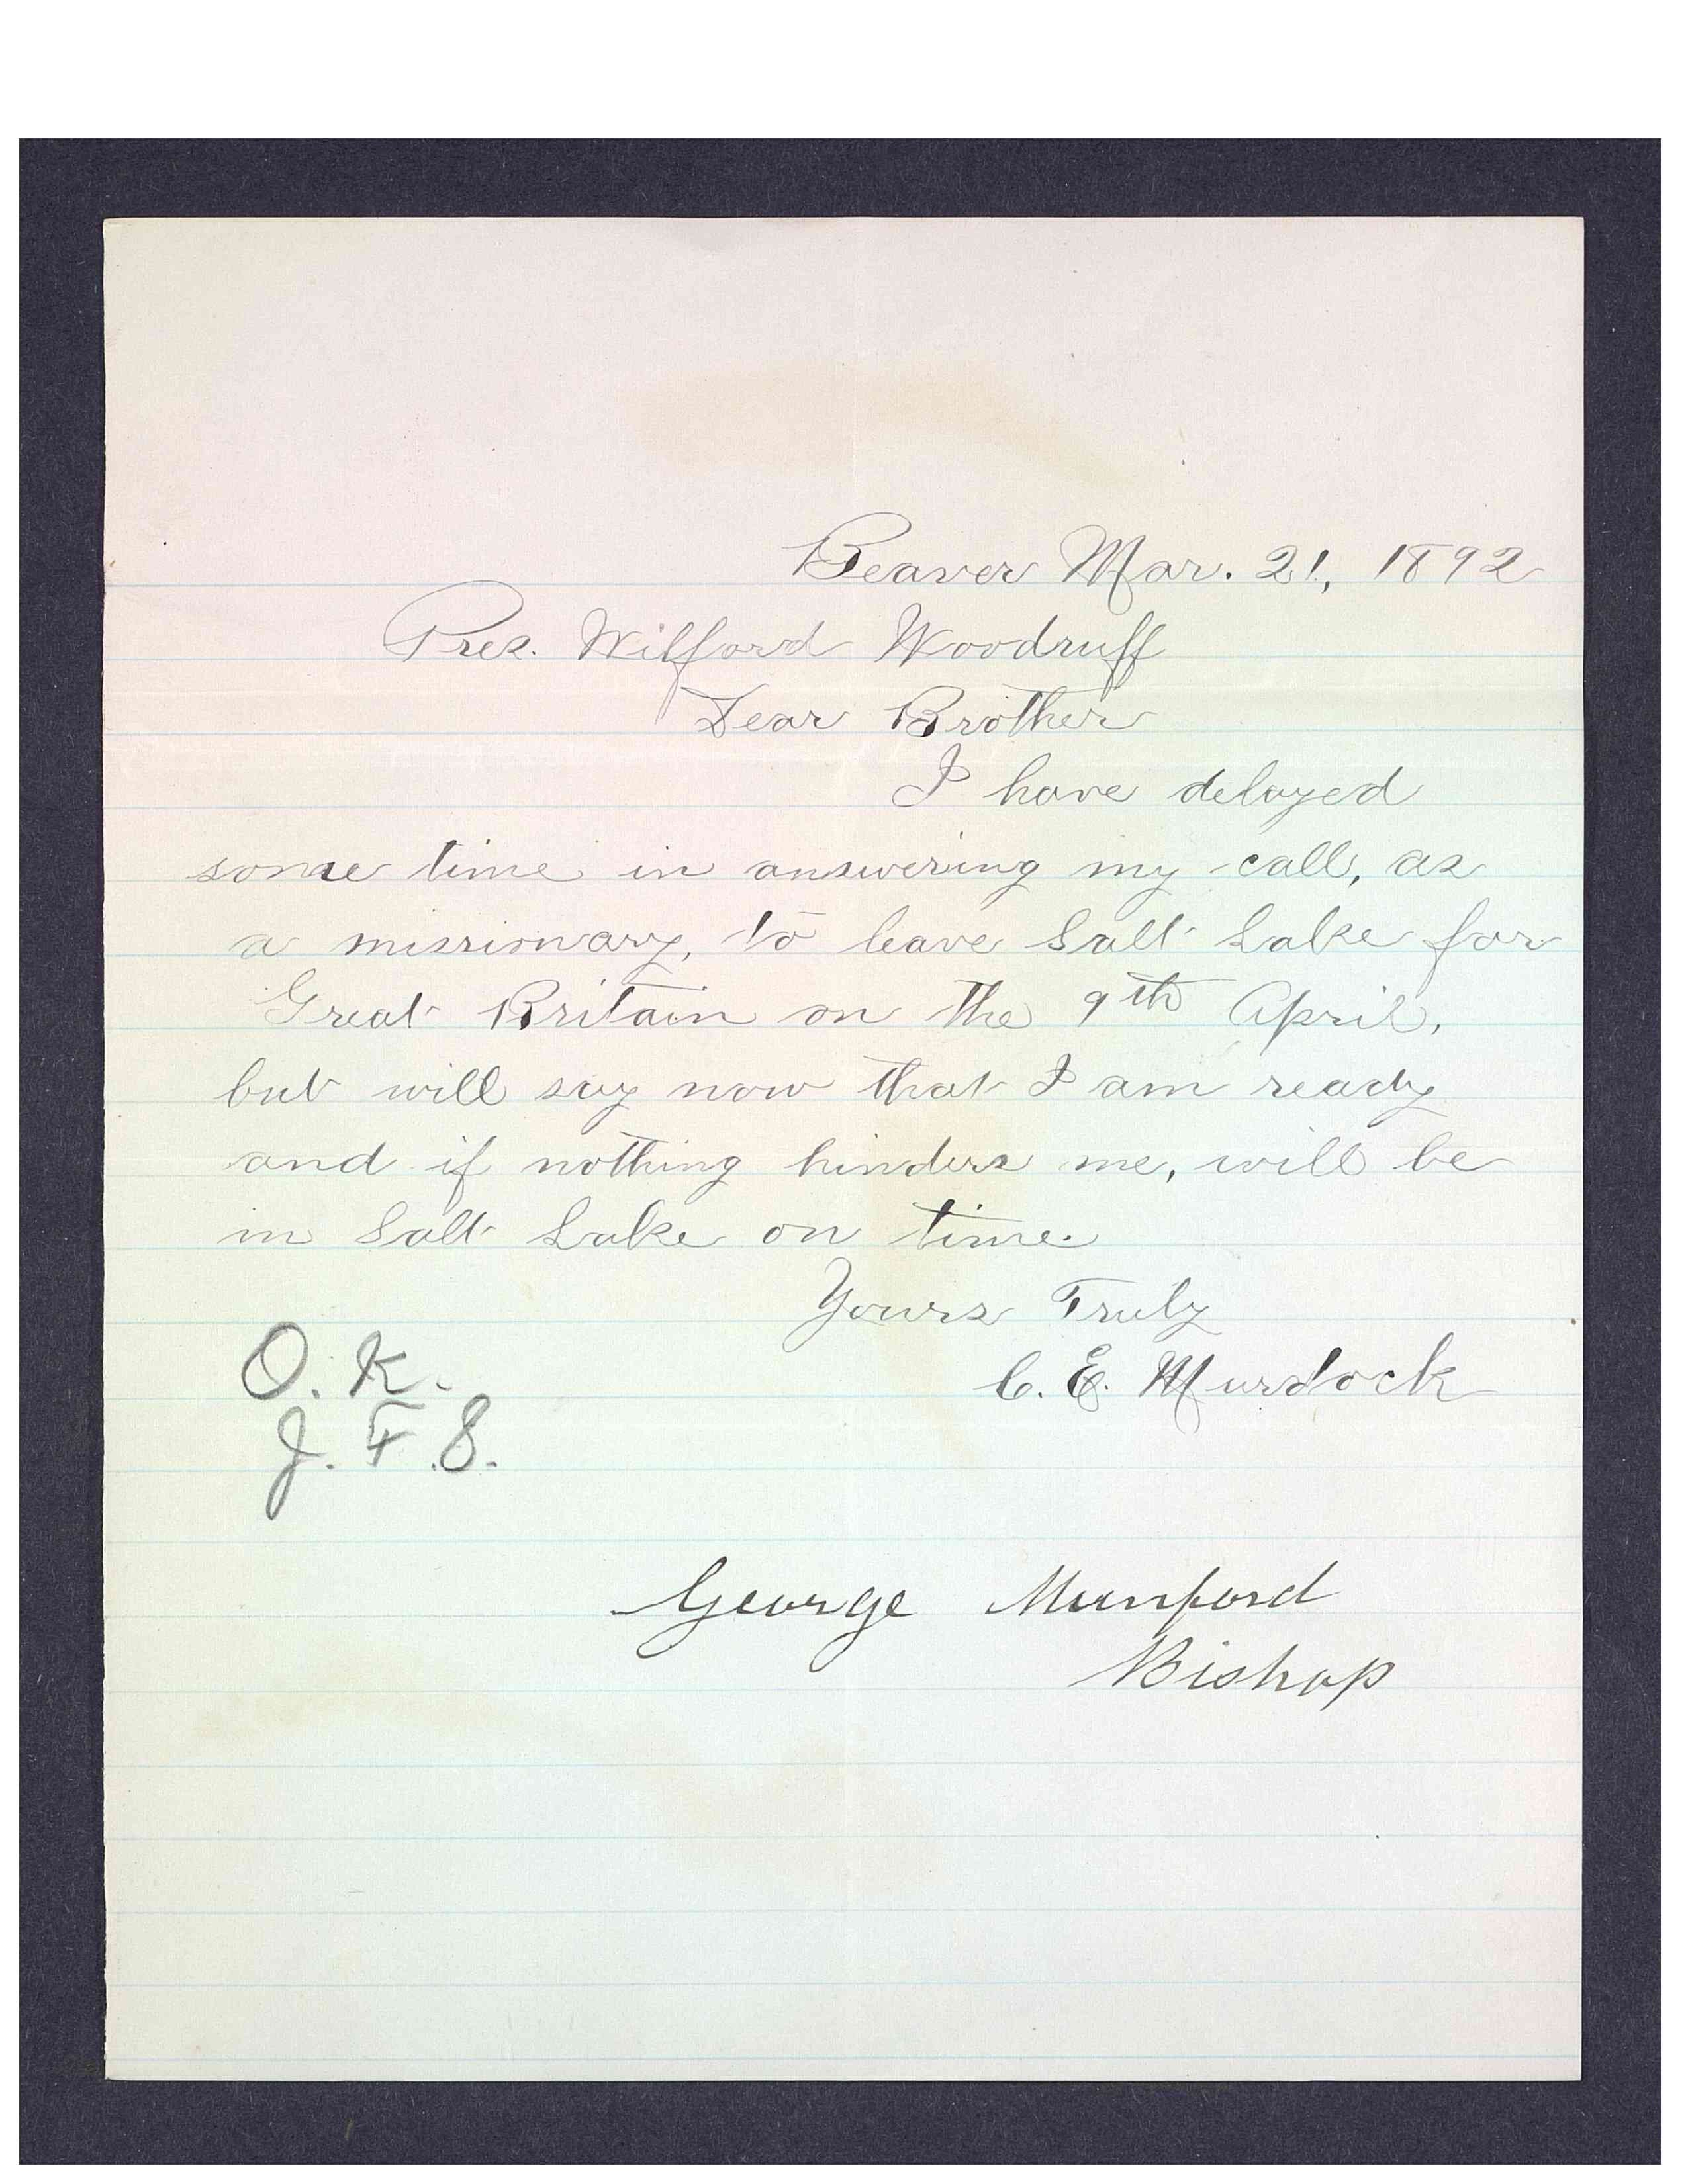 Beaver Mar. 21, 1892
Pres. Wilford Woodruff
Dear Brother
I have delayed
some time in answering my call, as
a missionary, to leave Salt Lake for
Great Britain on the 9th April,
but will say now that I am ready
and if nothing hinders me, will be
in Salt Lake on time.
Yours Truly
C. E. Murdock
O. K.
J. F. S.
George Munford
Bishop